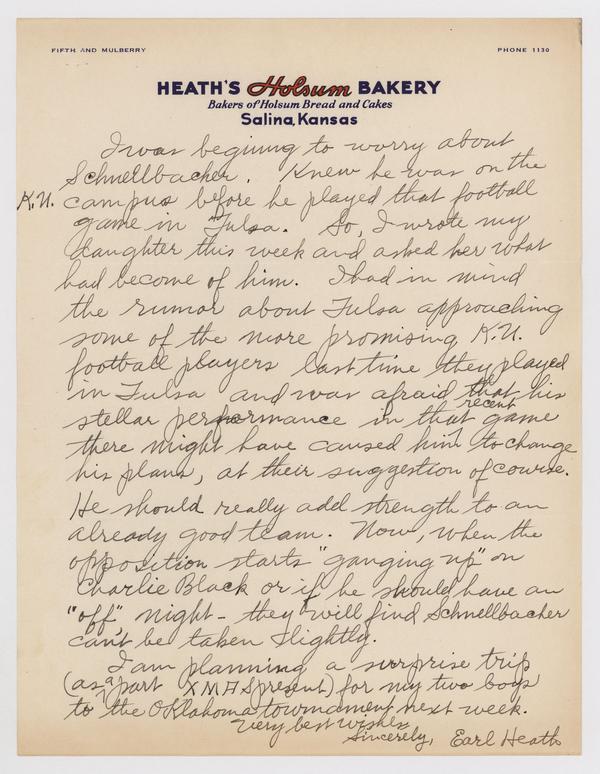 FIFTH AND MULBERRY
PHONE 1130
HEATH'S Holsum BAKERY
Bakers of Holsum Bread and Cakes
Salina, Kansas
I was begining to worry about
Schnellbacher. Knew he was on the
K.U. campus before he played that football
game in Tulsa. So, I wrote my
daughter this week and asked her what
had become of him. I had in mind
the rumor about Tulsa approaching
some of the more promising K.U.
football players last time they played
in Tulsa and was afraid that his
stellar performance in that recent game
there might have caused him to change
his plans, at their suggestion of course.
He should really add strength to an
already good team. Now, when the
opposition starts "ganging up" on
Charlie Black or if he should have an
"off" night - they will find Schnellbacher
can't be taken slightly.
I am planning a surprise trip
(as a part XMAS present) for my two boys
to the Oklahoma tournament next week.
Very best wishes
Sincerely, Earl Heath